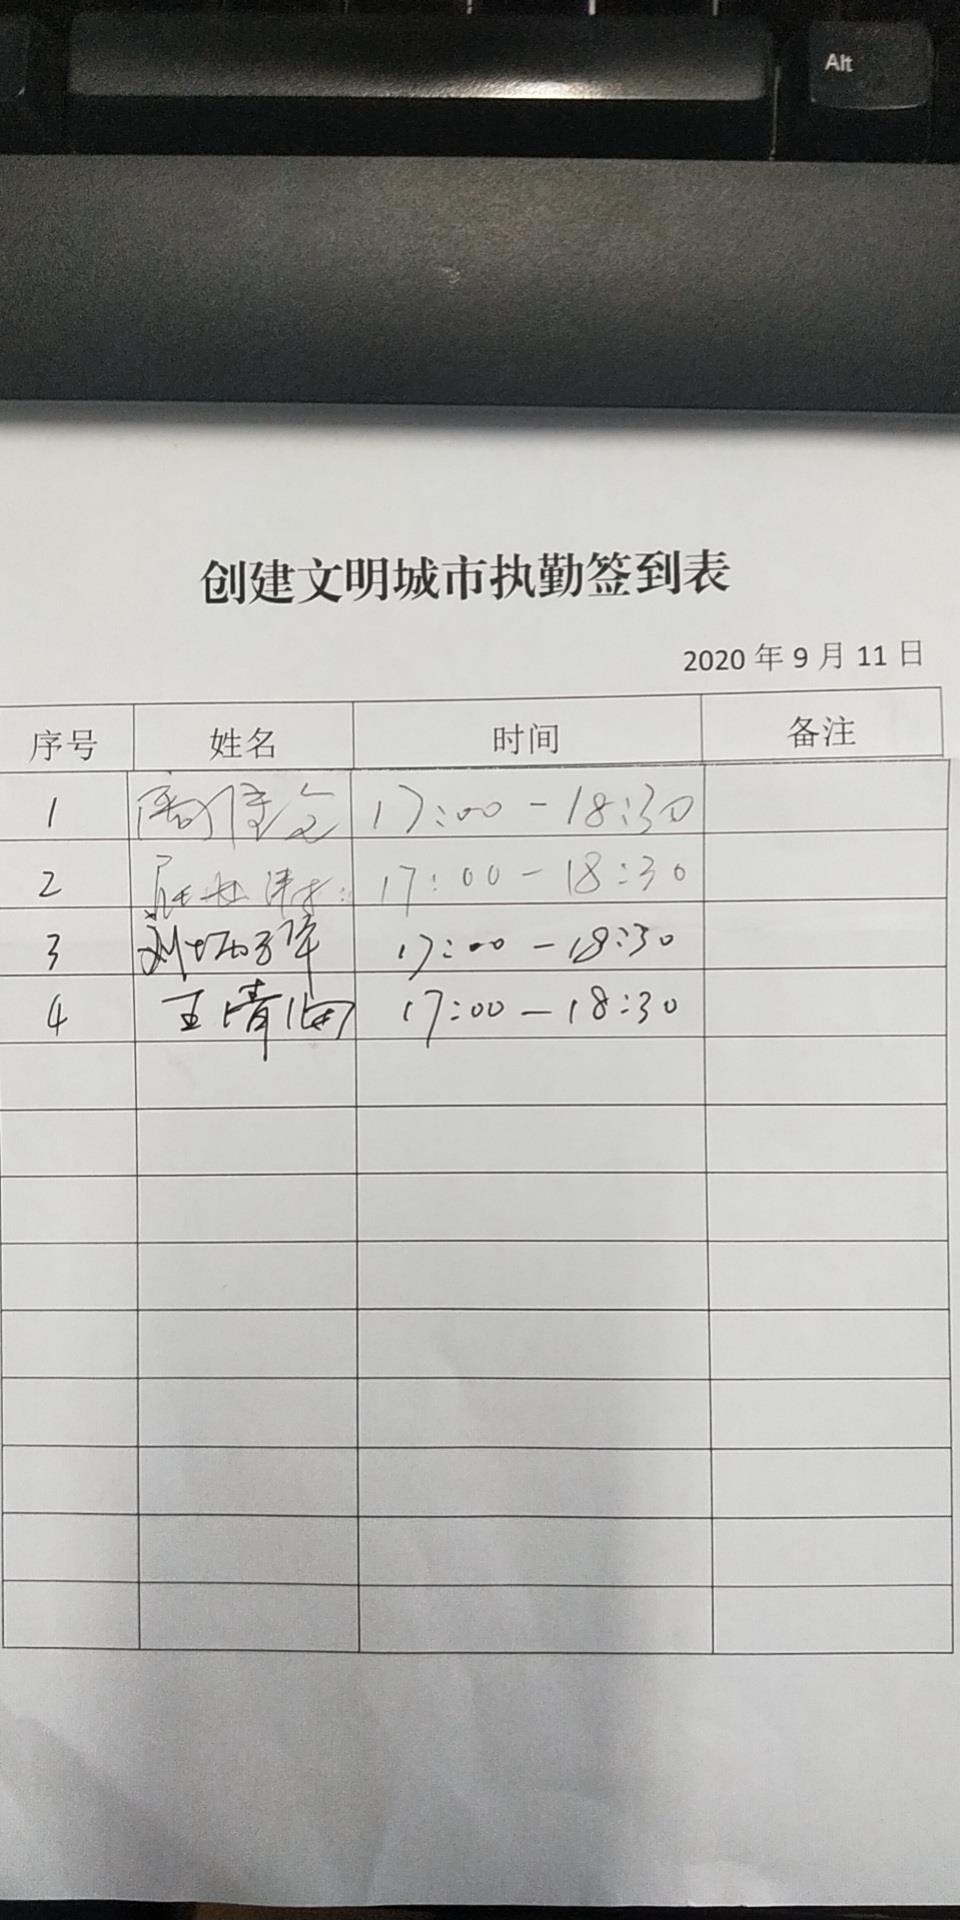 Alt
创建文明城市执勤签到表
2020年9月11日
序号 姓名 时间 备注
1 17:00-18:30
2 17:00-18:30
3 17:00-18:30
4 王清 17:00-18:30